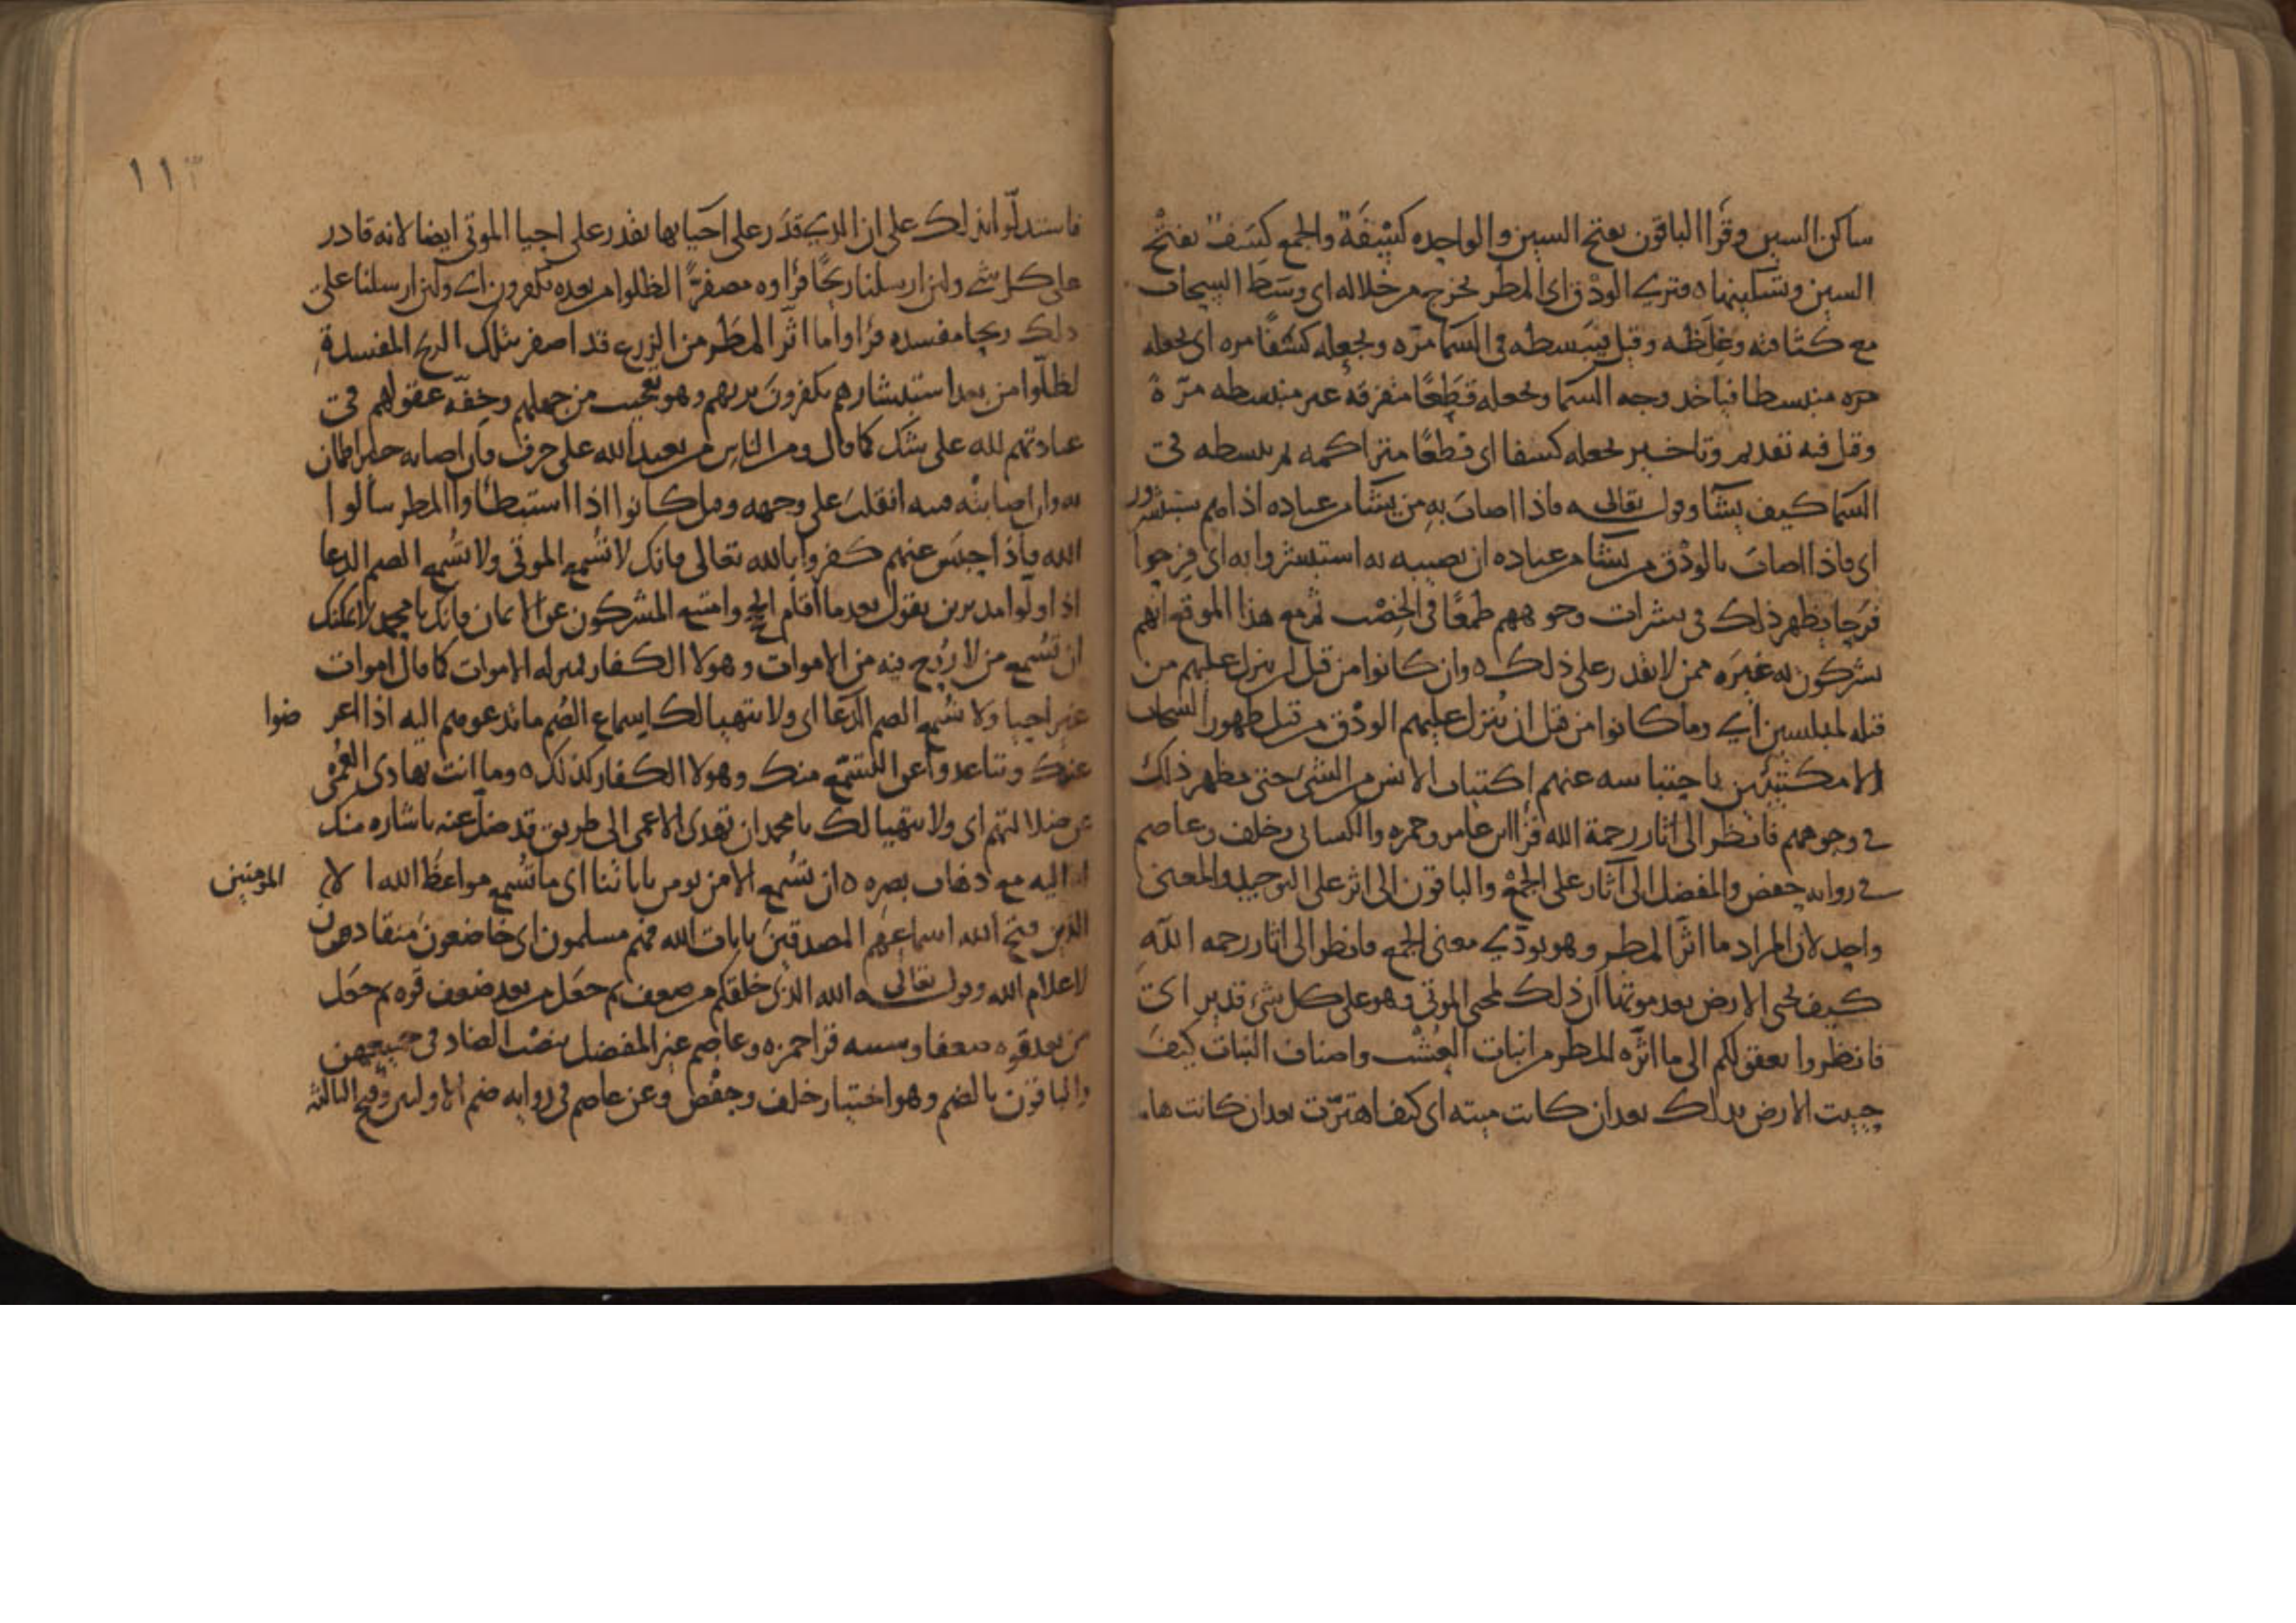 ساكن السين وقرأ الباقون بفتح السين والواحده كِسْفَة والجمع كِسَف بفتح
السين وتسكينها ه فترى الودق اى المطر يخرج من خلاله اى وسط السحاب
مع كثافته وغلظه وقيل فيبسطه في السما مرّه ويجعله كسفا مره اى يجعله
مره منبسطا فياخد وجه السما ويجعله قِطَعًا متفرقه غير منبسطه مرّة
وقيل فيه تقديم وتاخير يجعله كسفا اى قطعًا متراكمه ثم يبسطه في
السما كيف يشا وقوله تعالى فاذا اصاب به من يشا من عباده اذا هم يستبشرون
اى فاذا اصاب بالودْق من يشا من عباده ان يصيبه به استبشروا به اى فرحوا
فرحا يظهر ذلك في بشرات وجوههم طمعًا في الخِصْب ثم مع هذا الموقع انهم
يشركون به غيرَه ممن لا يقدر على ذلك ه وان كانوا من قبل ان ينزل عليهم من
قبله لمبلسين اي وما كانوا من قبل ان يُنزل عليهم الودْق من قبل ظهور السحاب
الا مكتئبين باحتباسه عنهم اكتياب الانس من الشي حتى يظهر ذلك
في وجوههم فانظر الى اثار رحمة الله قرأ ابن عامر وحمزه والكسائى وخلف وعاصم
في روايه حفص والمفضل الى آثار على الجمع والباقون الى اثر على التوحيد والمعنى
واحد لان المراد ما اثّر المطر وهو يودّي معنى الجمع فانظر الى اثار رحمه اللهِ
كيف يحى الارض بعد موتها ان ذلك لمحى الموتى وهو على كل شى قدير اى
فانظروا بعقولكم الى ما اثّره المطر من انبات العُشْب واصناف النبات كيفَ
حييت الارض بذلك بعد ان كانت ميته اى كيف اهتزّت بعد ان كانت هامد
١١٣
فاستدلّوا بذلك على ان الذي قدَر على احيايها يقدر على احيا الموتى ايضا لانه قادر
على كل شي ولئن ارسلنا ريحًا فرأوه مصفرًّا لظلوا من بعده يكفرون اي ولئن ارسلنا على
ذلك ريحا مفسده فرأوا ما اثّر المطر من الزرع قد اصفر بتلك الريح المفسدةِ
لظلّوا من بعد استبشارهم يكفرونَ بربهم وهو تعجيب من جهلهم وخفّه عقولهم في
عبادتهم لله على شك كما قال ومن الناس من يعبد الله على حرف فان اصابه خير اطمان
به وان اصابته فتنه انقلبَ على وجهه وقيل كانوا اذا استبطأوا المطر سألوا
الله فاذا حبس عنهم كفروا بالله تعالى فانك لا تُسْمِع الموتى ولا تسُمع الصم الدعا
اذا ولّوا مدبرين يقول بعد ما اقام الحج وامتنع المشركون عن الايمان فانك يا محمد لا يمكنك
ان تسُمع من لا رُوح فيه من الاموات وهولا الكفار بمنزله الاموات كما قال اموات
غير احيا ولا تسُمع الصم الدّعا اى ولا يتهيا لك اسماع الصُم ما تدعوهم اليه اذا اعرضوا
عنك وتباعدوا عن التسَمّع منك وهولا الكفار كذلك ه وما انت بهادى العُمى
عن ضلالتهم اى ولا يتهيا لك يا محمد ان تهدى الاعمى الى طريق قد ضلّ عنه باشاره منك
اليه مع ذهاب بصره ه ان تسُمع الا من يومن باياتنا اى ما تسُمع مواعظ الله الا المومنين
الذين فتح الله اسماعَهم المصدقينَ بايات الله فهم مسلمون اى خاضعونَ منقادون
لاعلام الله وقوله تعالى الله الذى خلقكم من ضعف ثم جعل من بعد ضعف قوه ثم جعل
من بعد قوه ضعفا وشيبه قرا حمزه وعاصم غير المفضل بنصْب الضاد في جميعهن
والباقون بالضم وهو اختيار خلف وحفْص وعن عاصم في روايه ضم الاوليين وفتح الثالثه